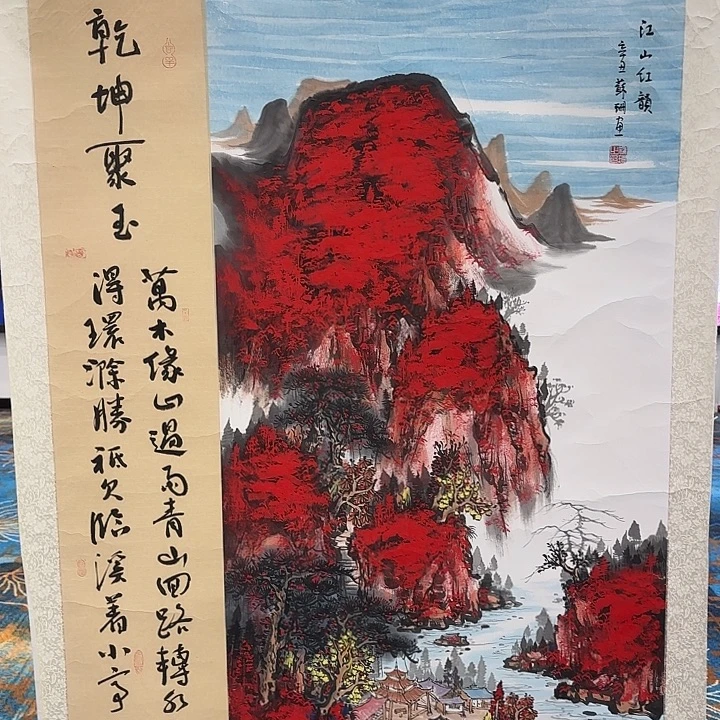 江山红韻
辛丑蘇珊畫
乾坤聚玉
萬木緣山過雨青山回路轉水
淂環滁勝祗欠臨溪着小亭